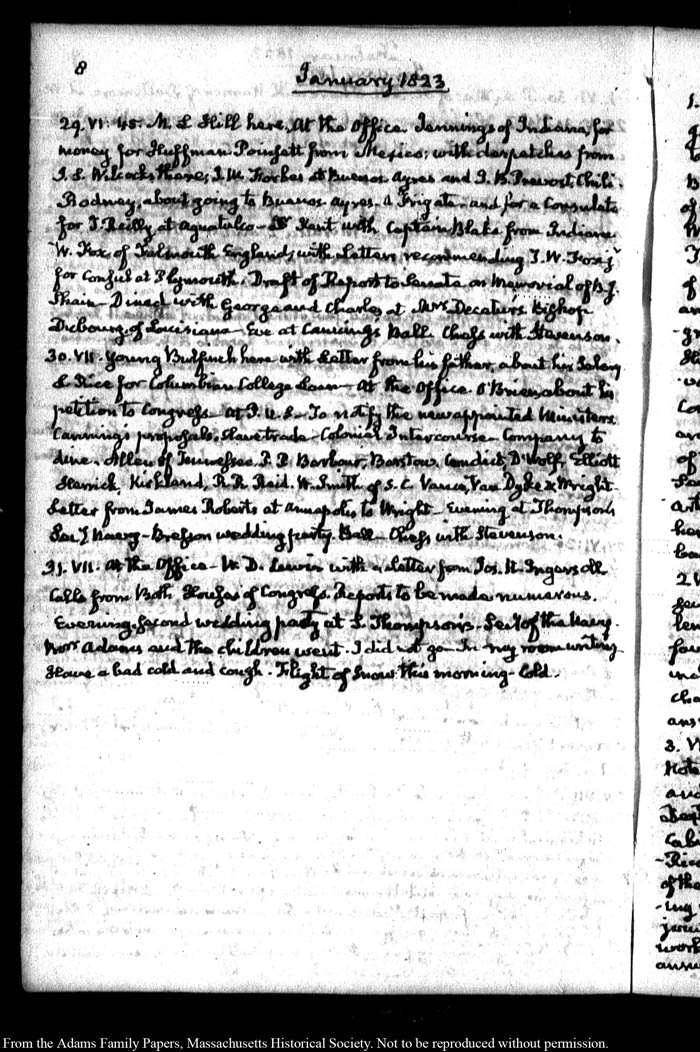 8
January 1823
29. VI: 45. M L Hill here. At the Office. Jennings of Indiana for
money for Huffman. Poinsett from Mexico; with despatches from
J. S. Wilcocks there; J. M. Forbes at Buenos Ayres and J. B. Prevost, Chili.
Rodney, about going to Buenos-Ayres. A Frigate and for a Consulate
for J. Reilly at Aguatulco— Dr. Kent, with Captain Blake from Indiana
W. Fox of Falmouth England, with Letters recommending T. W. Fox jr.
for Consul at Plymouth. Draft of Report to Senate on Memorial of B. J.
Shain— Dined with George and Charles, at Mrs. Decatur's. Bishop
Dubourg, of Louisiana— Eve at Cannings Ball. Chess with Stevenson.
30. VII. Young Bulfinch here with Letter from his father, about his Salary
L Rice for Columbian College Loan— At the Office. O'Brien about his
petition to Congress— At P. U. S— To notify the new appointed Ministers
Canning's proposals. Slave trade— Colonial Intercourse— Company to
dine. Allen of Tennessee. P. P. Barbour, Barstow, Condict, D'Wolf, Elliott
Herrick, Kirkland, R. R. Reid. W. Smith of S. C. Vance, Van Dyke & Wright.
Letter from James Roberts at Annapolis to Wright— Evening at Thompson's
Sec.y Navy— wedding party. Ball— Chess with Stevenson.
31. VII. At the Office— W. D. Lewis with a Letter from Jos. R. Ingersoll
Calls from Both Houses of Congress. Reports to be made numerous.
Evening. Second wedding party at S. Thompson's. Sec.y of the Navy.
Mrs. Adams and the children went. I did not go— In my room writing
Have a bad cold and cough. Flight of Snow this morning— Cold.
From the Adams Family Papers, Massachusetts Historical Society. Not to be reproduced without permission.